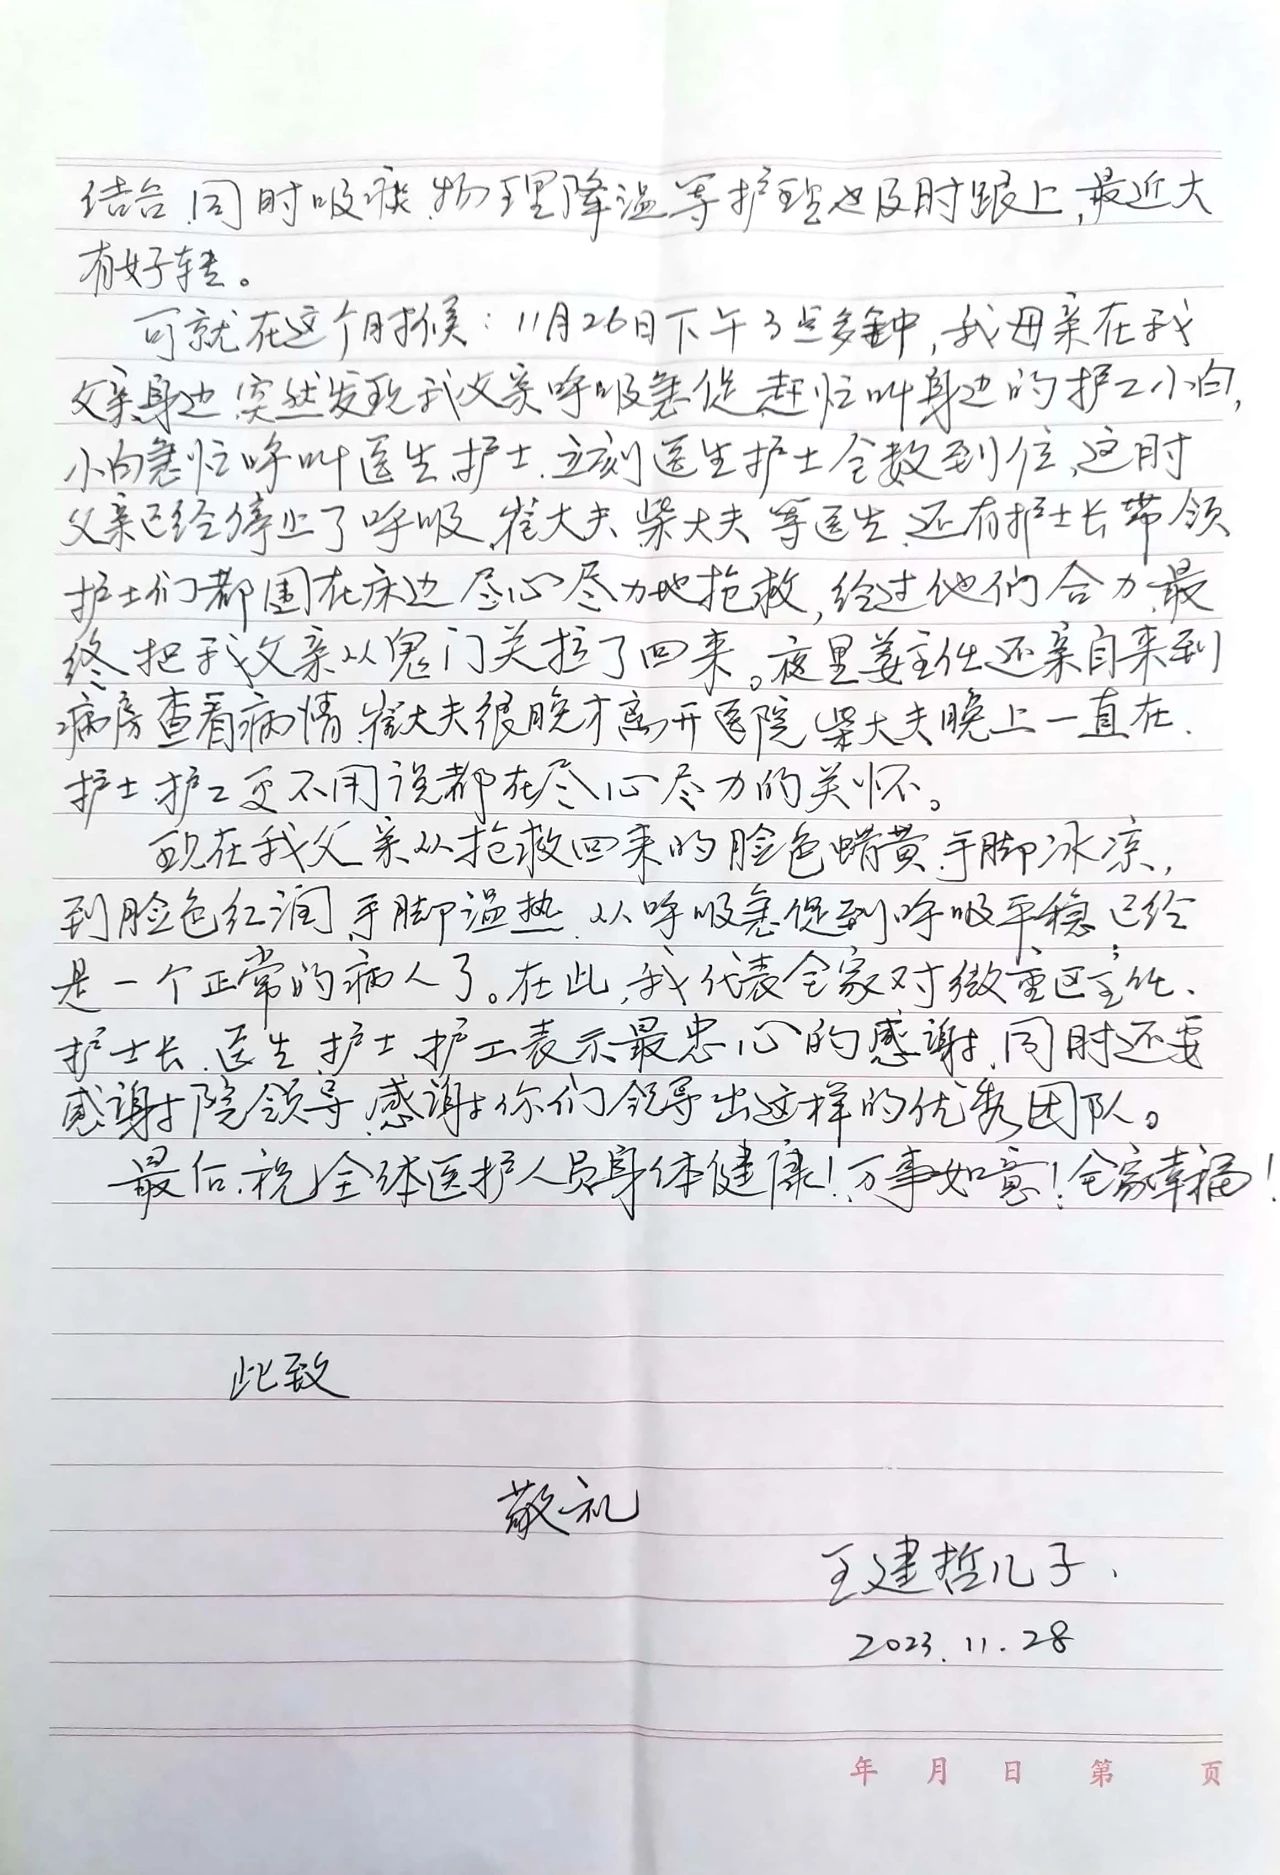 结合、同时吸痰、物理降温等护理也及时跟上，最近大
有好转。
可就在这个时候：11月26日下午3点多钟，我母亲在我
父亲身边，突然发现我父亲呼吸急促，赶忙叫身边的护工小白，
小白急忙呼叫医生护士、立刻医生护士全数到位、这时
父亲已经停止了呼吸、崔大夫、柴大夫等医生、还有护士长带领
护士们都围在床边尽心尽力地抢救，给过他们合力、最
终把我父亲从鬼门关拉了回来。夜里姜主任还亲自来到
病房查看病情、崔大夫很晚才离开医院，柴大夫晚上一直在、
护士、护工更不用说都在尽心尽力的关怀。
现在我父亲从抢救回来的脸色蜡黄、手脚冰凉，
到脸色红润、手脚温热、从呼吸急促到呼吸平稳、已经
是一个正常的病人了。在此、我代表全家对微重区主任、
护士长、医生、护士、护工表示最忠心的感谢、同时还要
感谢院领导、感谢你们领导出这样的优秀团队。
最后、祝全体医护人员身体健康！万事如意！全家幸福！
此致
敬礼
王建哲儿子、
2023.11.28
年 月 日 第 页